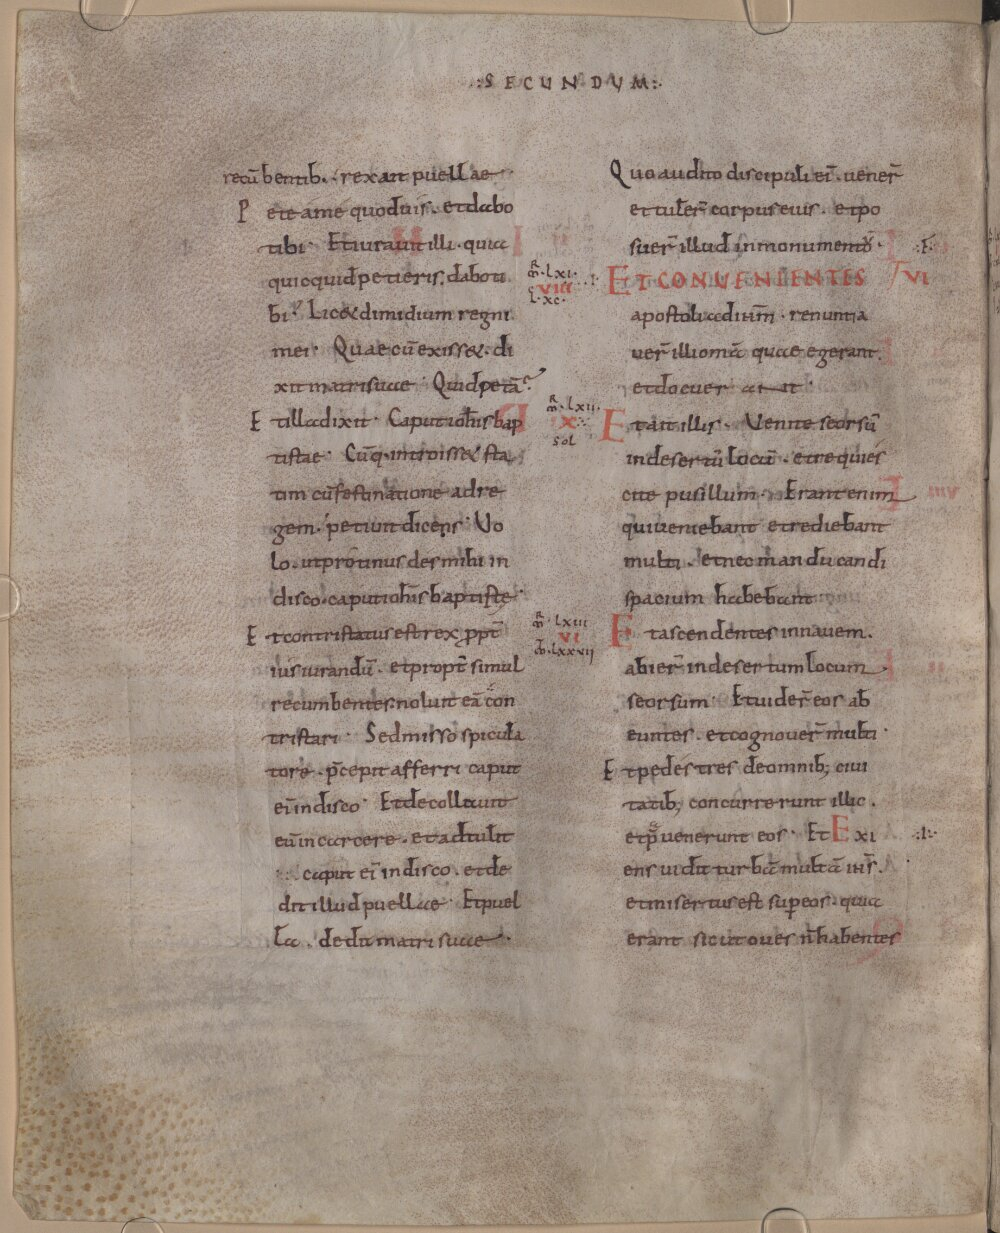 :SECUNDUM:
recū bentib. rex ait puellae
Pete a me quod uis. et dabo
tibi. Et iurauit illi. quia
quicquid petieris. dabo ti
bi. Licet dimidium regni
mei. Quae cū exisset. di
xit matri suae. Quid petā?
Et illa dixit. Caput iohīs bap
tistae. Cūq. introisset sta
tim cū festinatione ad re
gem. petiuit dicens. Uo
lo. ut protinus des mihi in
disco. caput iohīs baptistę.
Et contristatus est rex ppt̄
ius iurandū. et propt̄ simul
recumbentes noluit eā con
tristari. Sed misso spicula
tore. p̄cepit afferri caput
ei' in disco. Et decollauit
eū in carcere. et adtulit
caput ei' in disco. et de
dit illud puellae. Et puel
la. dedit matri suae.
m̄. lxi.
VIII
l. xc.
m̄. lxii.
X
sol
m̄. lxiii
VI
io. lxxvii
Quo audito discipuli ei'. uener̄
et tuler̄ corpus eius. et po
suer̄ illud in monumento. .F.
ET CONUENIENTES VI
apostoli ad ihm̄. renuntia
uer̄ illi omā quae egerant.
et docuerant.
Et ait illis. Uenite seorsū
in desertū locū. et requies
cite pusillum. Erant enim
qui ueniebant et rediebant
multi. et nec manducandi
spacium habebant.
Et ascendentes in nauem.
abier̄ in desertum locum.
seorsum. Et uider̄ eos ab
euntes. et cognouer̄ multi.
Et pedestres de omnib; ciui
tatib; concurrerunt illic.
et p̄uenerunt eos. Et Exi
ens uidit turbā multā ihs̄.
et misertus est sup eos. quia
erant sicut oues n̄ habentes